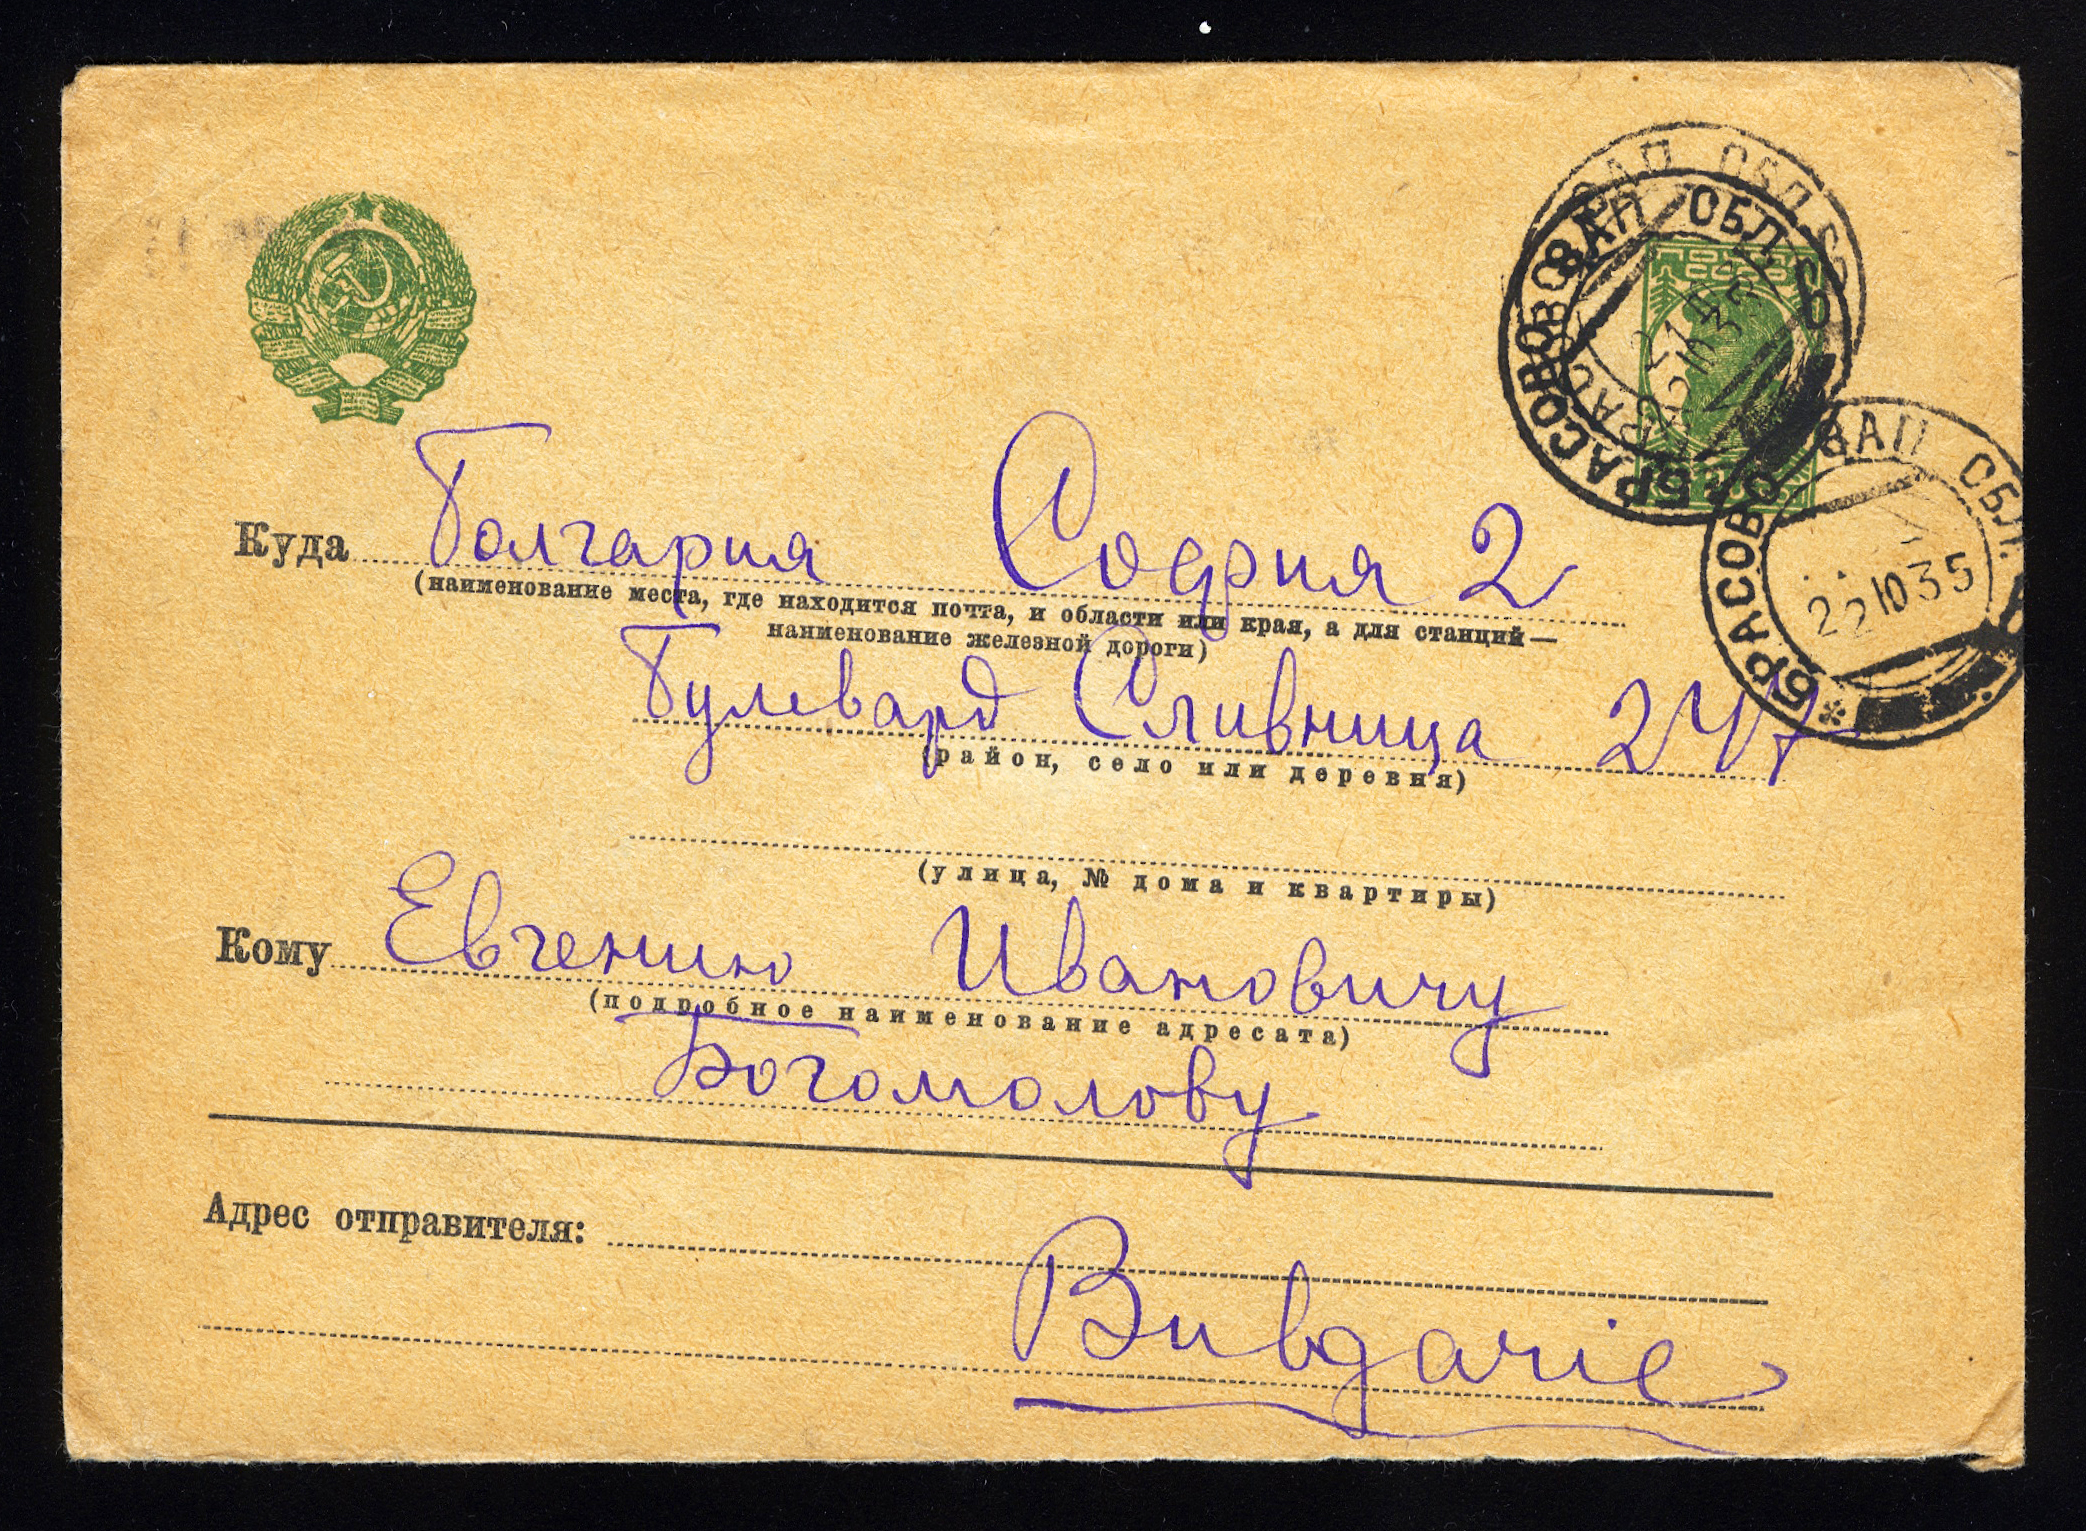 ЗАП ОБЛ. Б
БРАСОВО
ПОЧТА
СССР
ЗАП ОБЛ.
БРАСОВО
22 10 35
Куда Болгария София 2
(наименование места, где находится почта, и области или края, а для станций—
наименование железной дороги)
Булевард Сливница 247
(район, село или деревня)
(улица, № дома и квартиры)
Кому Евгению Ивановичу
(подробное наименование адресата)
Богомолову
Адрес отправителя:
Bulgarie